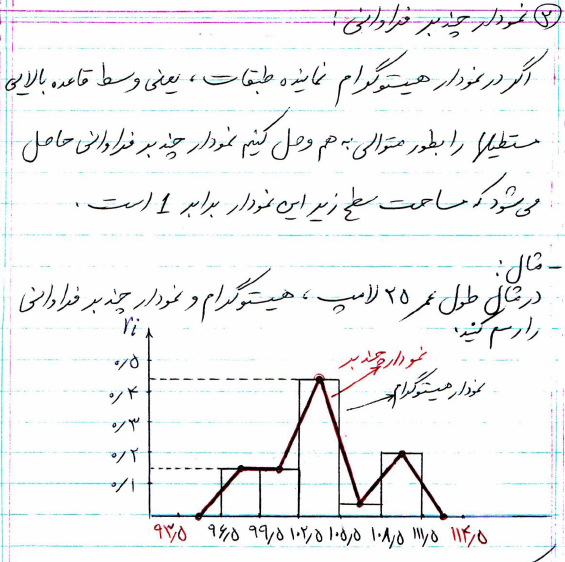 ③ نمودار چندبر فراوانی :
اگر در نمودار هیستوگرام نماینده طبقات ، یعنی وسط قاعده بالایی
مستطیلها را بطور متوالی به هم وصل کنیم نمودار چندبر فراوانی حاصل
می‌شود که مساحت سطح زیر این نمودار برابر 1 است .
- مثال :
در مثال طول عمر ۲۵ لامپ ، هیستوگرام و نمودار چندبر فراوانی
را رسم کنید.
ri
نمودار چندبر
نمودار هیستوگرام
۰/۵
۰/۴
۰/۳
۰/۲
۰/۱
۹۳٫۵ ۹۶٫۵ ۹۹٫۵ ۱۰۲٫۵ ۱۰۵٫۵ ۱۰۸٫۵ ۱۱۱٫۵ ۱۱۴٫۵